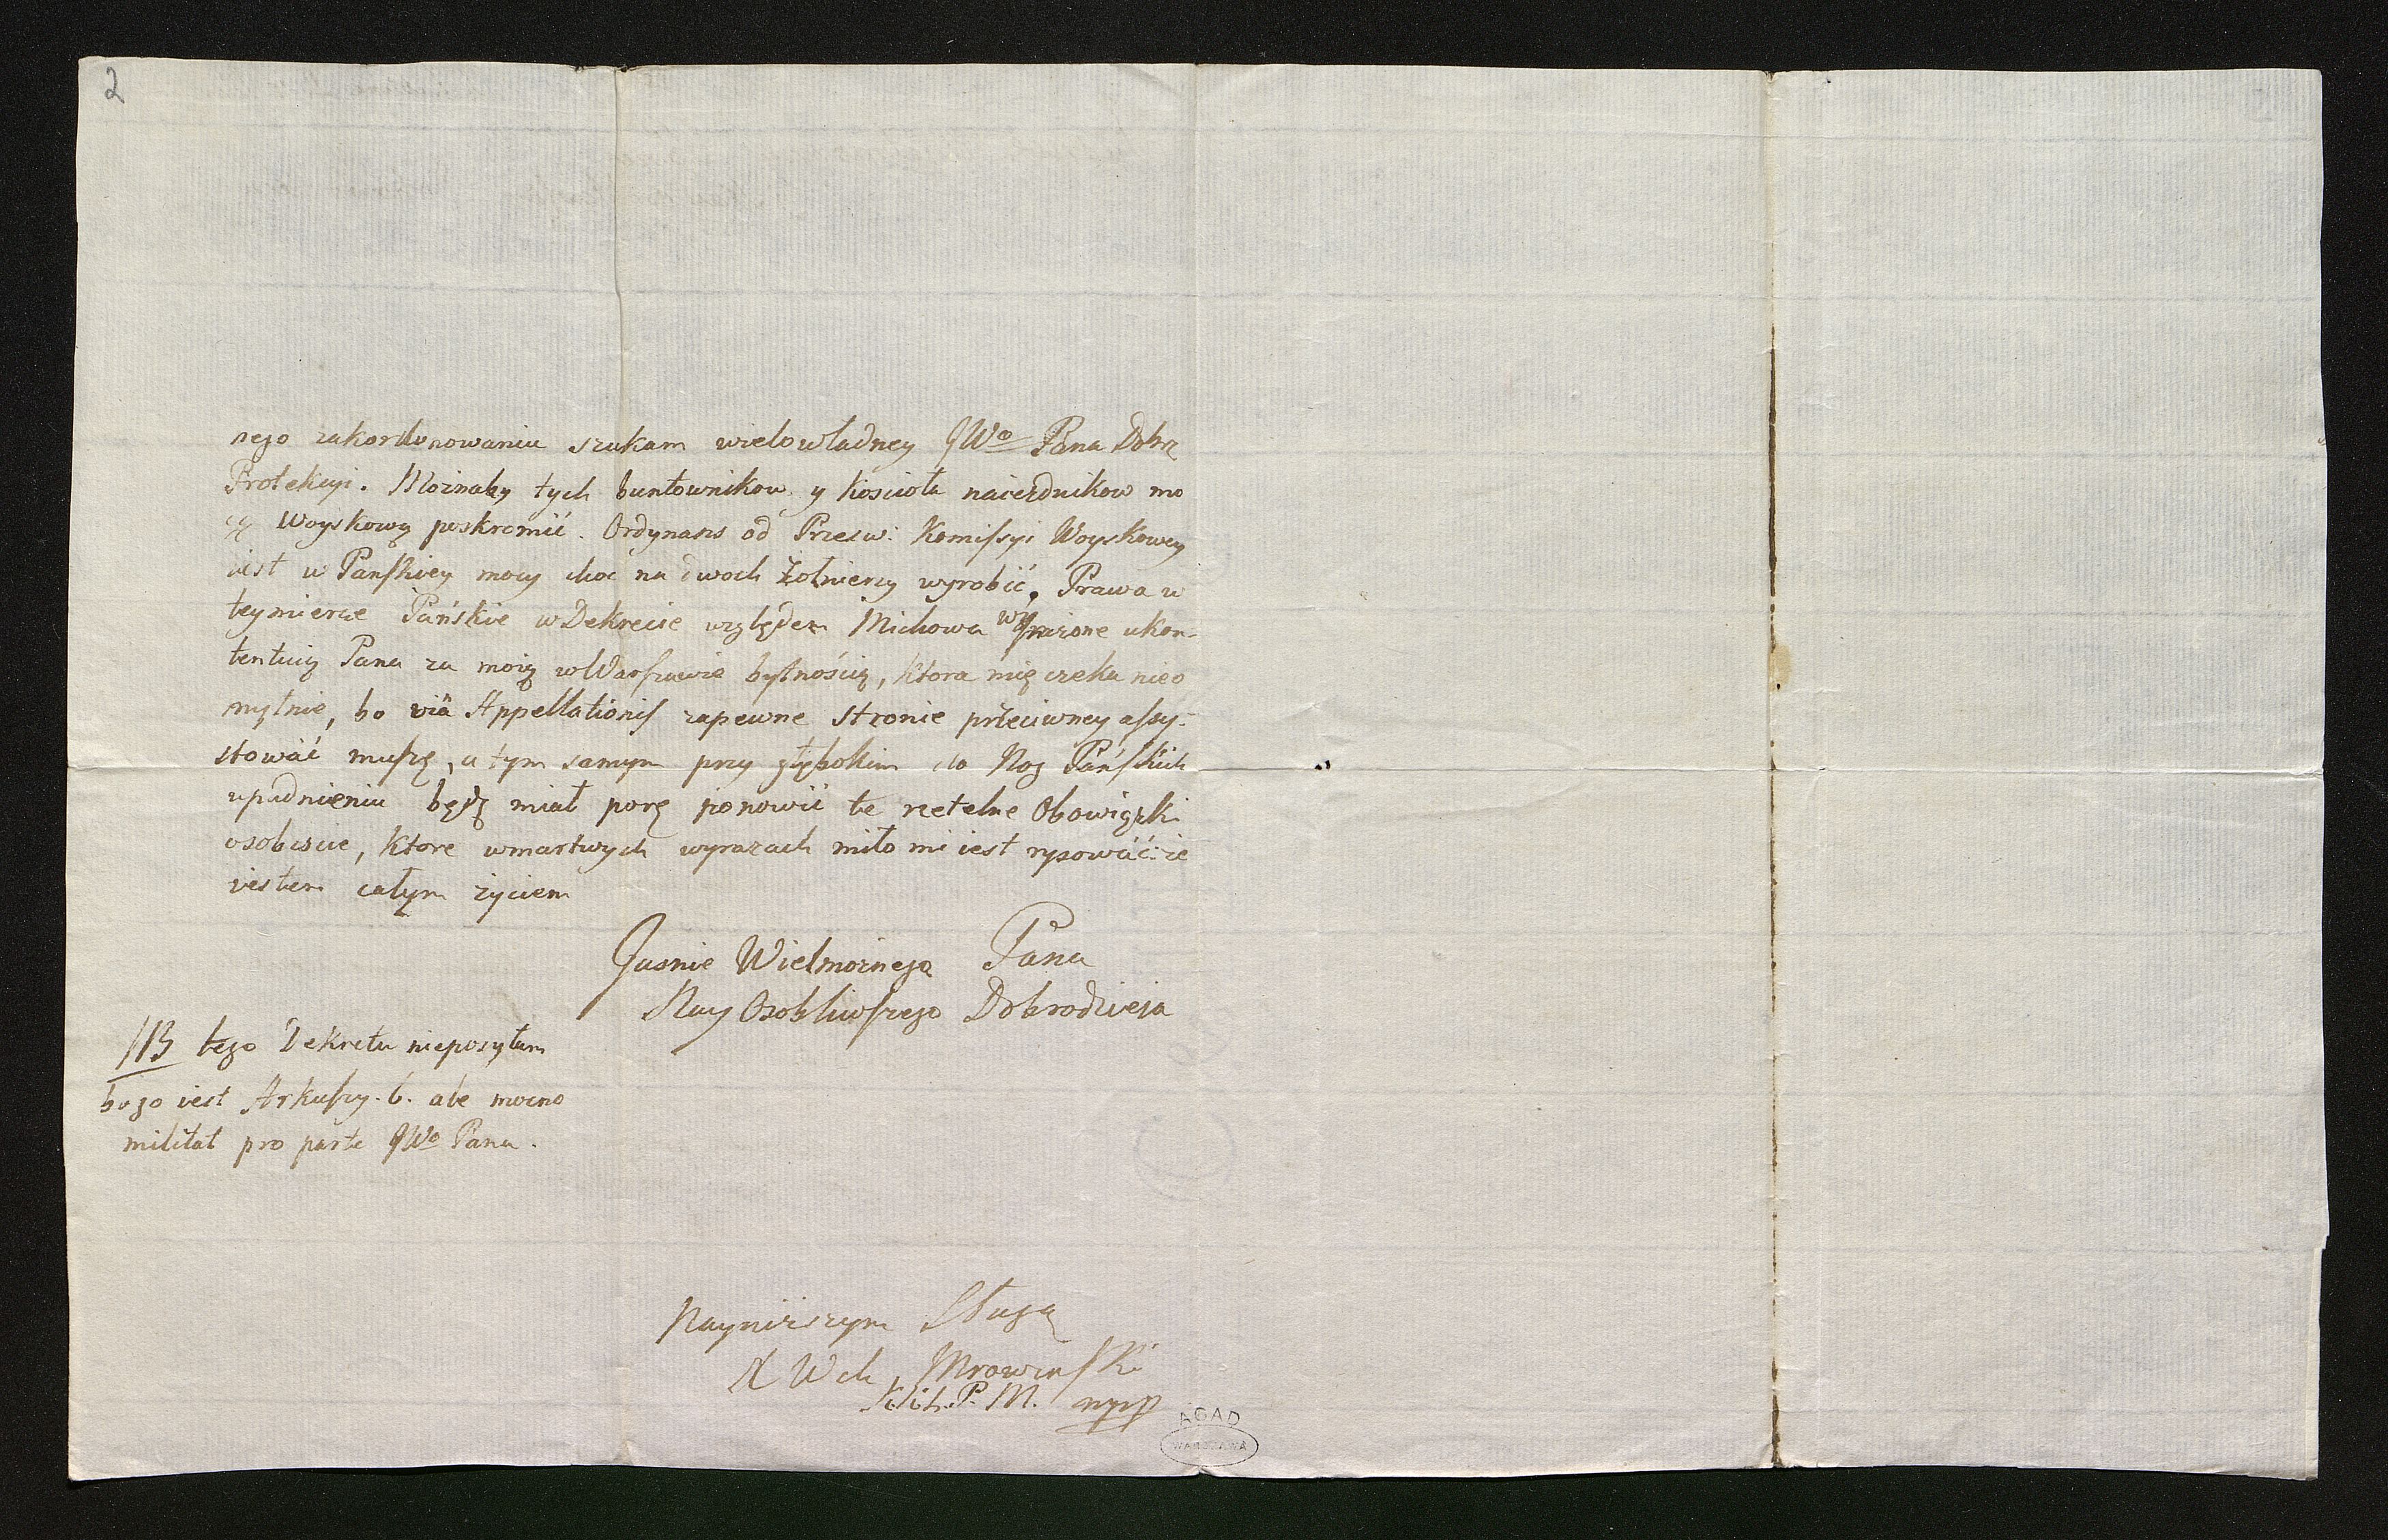 2
nego zakordonowaniu szukam wielowładney JWo Pana Dobr
Protekcyi. Możnaby tych buntownikow y kościoła naiezdnikow mo
cą Woyskową poskromić. Ordynans od Prześw: Komissyi Woyskowey
iest w Pańskiey mocy choć na dwoch Żołnierzy wyrobić. Prawa w
teymierze Pańskie w Dekrecie względem Michowa wyrażone ukon-
tentuią Pana za moią w Warszawie bytnością, ktora mię czeka nieo
mylnie, bo viâ Appellationis zapewne stronie przeciwney assy-
stować muszę, a tym samym przy głębokim do Nog Pańskich
upadnieniu będę miał porę ponowić te rzetelne Obowiązki
osobiście, ktore w martwych wyrazach miło mi iest rysować: że
iestem całym życiem
Jasnie Wielmożnego Pana
Nay Osobliwszego Dobrodzieja
NB tego Dekretu nieposyłam
bo go iest Arkuszy. 6. ale mocno
militat pro parte JWo Pana.
Nayniższym Sługą
X Woh Mrowinski
P. M. mpp
AGAD
WARSZAWA